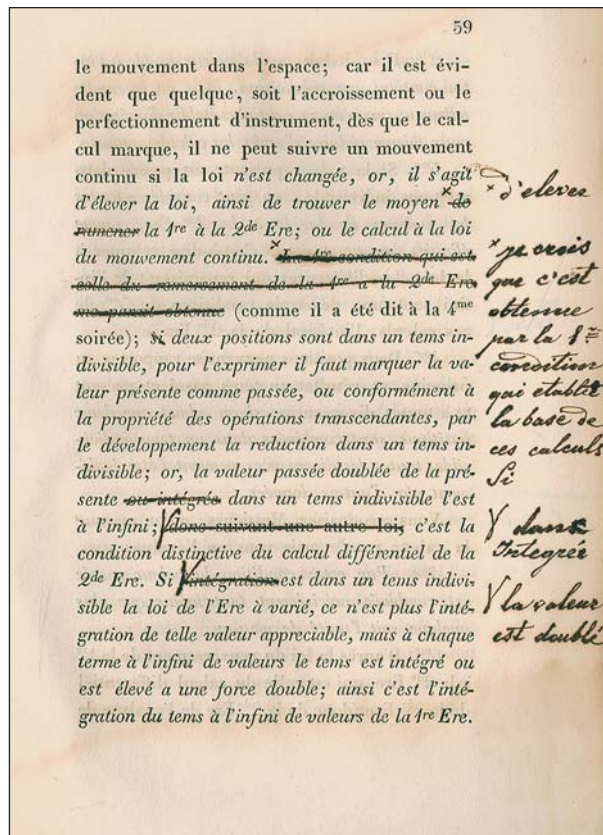 59
le mouvement dans l'espace; car il est évi-
dent que quelque, soit l'accroissement ou le
perfectionnement d'instrument, dès que le cal-
cul marque, il ne peut suivre un mouvement
continu si la loi n'est changée, or, il s'agit
d'élever la loi, ainsi de trouver le moyen × de
ramener la 1re à la 2de Ere; ou le calcul à la loi
du mouvement continu. × La 1re condition qui est
celle du renversement de la 1re a la 2de Ere
me parait obtenue (comme il a été dit à la 4me
soirée); si deux positions sont dans un tems in-
divisible, pour l'exprimer il faut marquer la va-
leur présente comme passée, ou conformément à
la propriété des opérations transcendantes, par
le développement la reduction dans un tems in-
divisible; or, la valeur passée doublée de la pré-
sente ou intégrée dans un tems indivisible l'est
à l'infini; donc suivant une autre loi, c'est la
condition distinctive du calcul différentiel de la
2de Ere. Si intégration est dans un tems indivi-
sible la loi de l'Ere à varié, ce n'est plus l'inté-
gration de telle valeur appreciable, mais à chaque
terme à l'infini de valeurs le tems est intégré ou
est élevé a une force double; ainsi c'est l'inté-
gration du tems à l'infini de valeurs de la 1re Ere.
× d'elever
× je crois
que c'est
obtenue
par la 1re
condition
qui etablit
la base de
ces calculs
Si
dans
Integrée
la valeur
est doublé